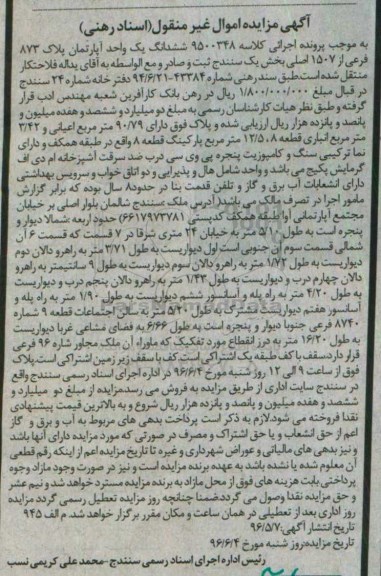 آگهی مزایده اموال غیر منقول(اسناد رهنی)
به موجب پرونده اجرائی کلاسه ۹۵۰۰۳۴۸ ششدانگ یک واحد آپارتمان پلاک ۸۷۳
فرعی از ۱۵۰۷ اصلی بخش یک سنندج ثبت و صادر و مع الواسطه به آقای یداله فلاحتکار
منتقل شده است.طبق سند رهنی شماره ۴۳۳۸۴-۹۴/۶/۲۱ دفتر خانه شماره ۲۴ سنندج
در قبال مبلغ ۱/۸۰۰/۰۰۰/۰۰۰ ریال در رهن بانک کارآفرین شعبه مهندس ادب قرار
گرفته و طبق نظر هیات کارشناسان رسمی به مبلغ دو میلیارد و ششصد و هفده میلیون و
پانصد و پانزده هزار ریال ارزیابی شده و پلاک فوق دارای ۹۰/۷۹ متر مربع اعیانی و ۳/۴۲
متر مربع انباری قطعه ۸ و ۱۲/۵ متر مربع پارکینگ قطعه ۸ واقع در طبقه همکف و دارای
نما ترکیبی سنگ و کامپوزیت پنجره پی وی سی درب ضد سرقت آشپزخانه ام دی اف
گرمایش پکیج می باشد و واحد شامل هال و پذیرایی و دو اتاق خواب و سرویس بهداشتی
دارای انشعابات آب برق و گاز و تلفن قدمت بنا در حدود ۸ سال بوده که برابر گزارش
مامور اجرا در تصرف مالک می باشد(آدرس ملک :سنندج شالمان بلوار اصلی بر خیابان
مجتمع آپارتمانی آوا طبقه همکف کدپستی ۶۶۱۷۹۷۳۷۸۱) حدود اربعه :شمالا دیوار و
پنجره است به طول ۵/۱۰ متر به خیابان ۲۴ متری شرقا در ۷ قسمت که قسمت ۶ آن
شمالی قسمت سوم آن جنوبی است اول دیواریست به طول ۳/۷۱ متر به راهرو دالان دوم
دیواریست به طول ۱/۷۲ متر به راهرو دالان سوم دیواریست به طول ۹ سانتیمتر به راهرو
دالان چهارم درب و دیواریست به طول ۱/۴۳ متر به راهرو دالان پنجم درب و دیواریست
به طول ۴/۲۰ متر به راه پله و آسانسور ششم دیواریست به طول ۱/۹۰ متر به راه پله و
آسانسور هفتم دیواریست مشترک به طول ۵/۲۰ متر به سالن اجتماعات قطعه ۹ شماره
۸۷۴۰ فرعی جنوبا دیوار و پنجره است به طول ۶/۶۶ به فضای مشاعی غربا دیواریست
به طول ۱۶/۲۰ متر به درز انقطاع مورد تفکیک که ماوراء آن ملک مجاور شاره ۹۶ فرعی
قرار دارد.سقف با کف طبقه یک اشتراکی است کف با سقف زیر زمین اشتراکی است.پلاک
فوق از ساعت ۹ الی ۱۲ روز شنبه مورخ ۹۶/۶/۴ در اداره اجرای اسناد رسمی سنندج واقع
در سنندج سایت اداری از طریق مزایده به فروش می رسد.مزایده از مبلغ دو میلیارد و
ششصد و هفده میلیون و پانصد و پانزده هزار ریال شروع و به بالاترین قیمت پیشنهادی
نقدا فروخته می شود.لازم به ذکر است پرداخت بدهی های مربوط به آب و برق و گاز
اعم از حق انشعاب و یا حق اشتراک و مصرف در صورتی که مورد مزایده دارای آنها باشد
و نیز بدهی های مالیاتی و عوارض شهرداری و غیره تا تاریخ مزایده اعم از اینکه رقم قطعی
آن معلوم شده یا نشده باشد به عهده برنده مزایده است و نیز در صورت وجود مازاد وجوه
پرداختی بابت هزینه های فوق از محل مازاد به برنده مزایده مسترد خواهد شد و نیم عشر
و حق مزایده نقدا وصول می گردد.ضمنا چنانچه روز مزایده تعطیل رسمی گردد مزایده
روز اداری بعد از تعطیلی در همان ساعت و مکان مقرر برگزار خواهد شد. م الف ۹۴۵
تاریخ انتشار آگهی:۹۶/۵/۷
تاریخ مزایده:روز شنبه مورخ ۹۶/۶/۴
رئیس اداره اجرای اسناد رسمی سنندج-محمد علی کریمی نسب